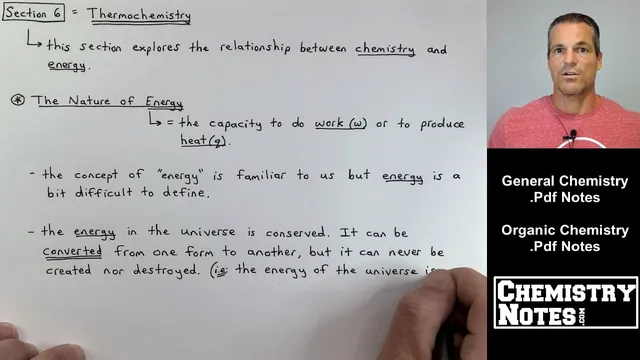 Section 6 = Thermochemistry
this section explores the relationship between chemistry and
energy.
* The Nature of Energy
= the capacity to do work (w) or to produce
heat (q).
- the concept of "energy" is familiar to us but energy is a
bit difficult to define.
- the energy in the universe is conserved. It can be
converted from one form to another, but it can never be
created nor destroyed. (i.e. the energy of the universe is
General Chemistry
.Pdf Notes
Organic Chemistry
.Pdf Notes
CHEMISTRY
NOTES.COM